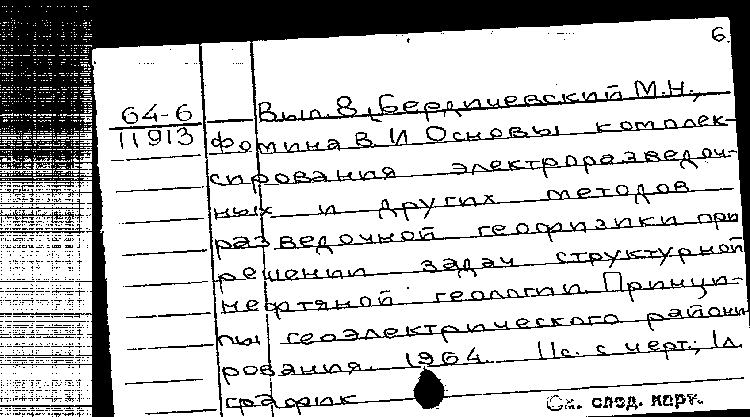 6.
64-6
11913
Вып. 8, Бердичевский М.Н.,
Фомина В И Основы комплек-
сирования электроразведоч-
ных и других методов
разведочной геофизики при
решении задач структурной
нефтяной геологии. Принци-
пы геоэлектрического райони
рования. 1964. 11с. с черт.; 1л.
график
См. след. карт.